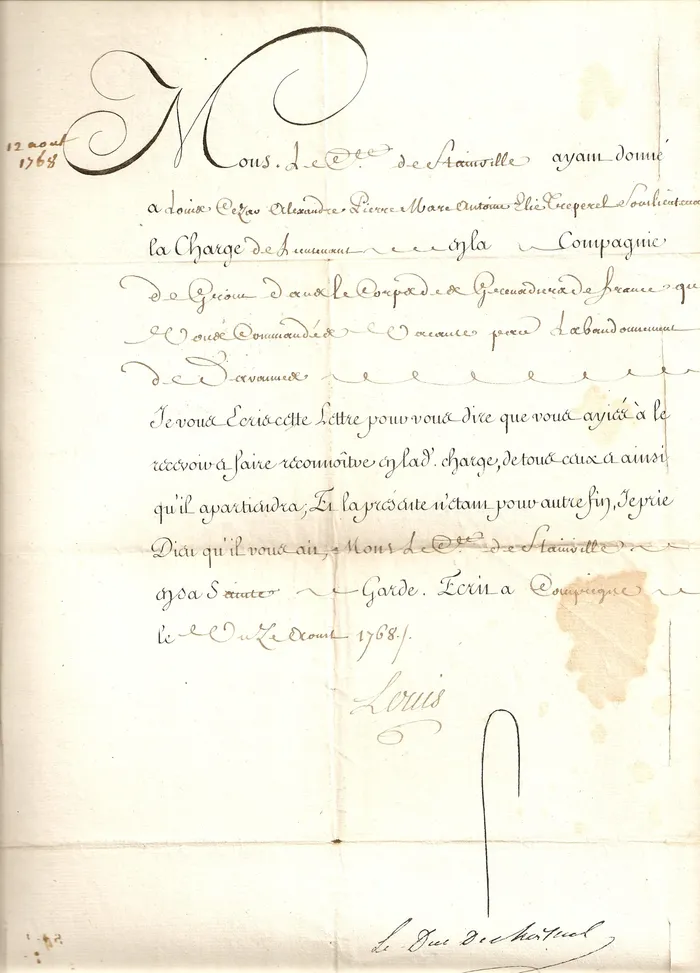 12 aout
1768
Mons. Le Cte. de Stainville ayant donné
a Louis Cezar Alexandre Pierre Marc Antoine Elie Treperel Souslieutenant
la Charge de Lieutenant en la Compagnie
de Giron dans le Corps des Grenadiers de france que
Vous Commandés Vacante par Labandonnement
de Davannes
Je vous Ecris cette Lettre pour vous dire que vous ayiés à le
recevoir et faire reconnoître en lad. charge, de tous ceux et ainsi
qu'il apartiendra; Et la présente n'étant pour autre fin, Je prie
Dieu qu'il vous ait, Mons Le Cte. de Stainville
en sa Sainte Garde. Ecrit a Compiegne
le Onze Aoust 1768./.
Louis
Le Duc De Choiseul